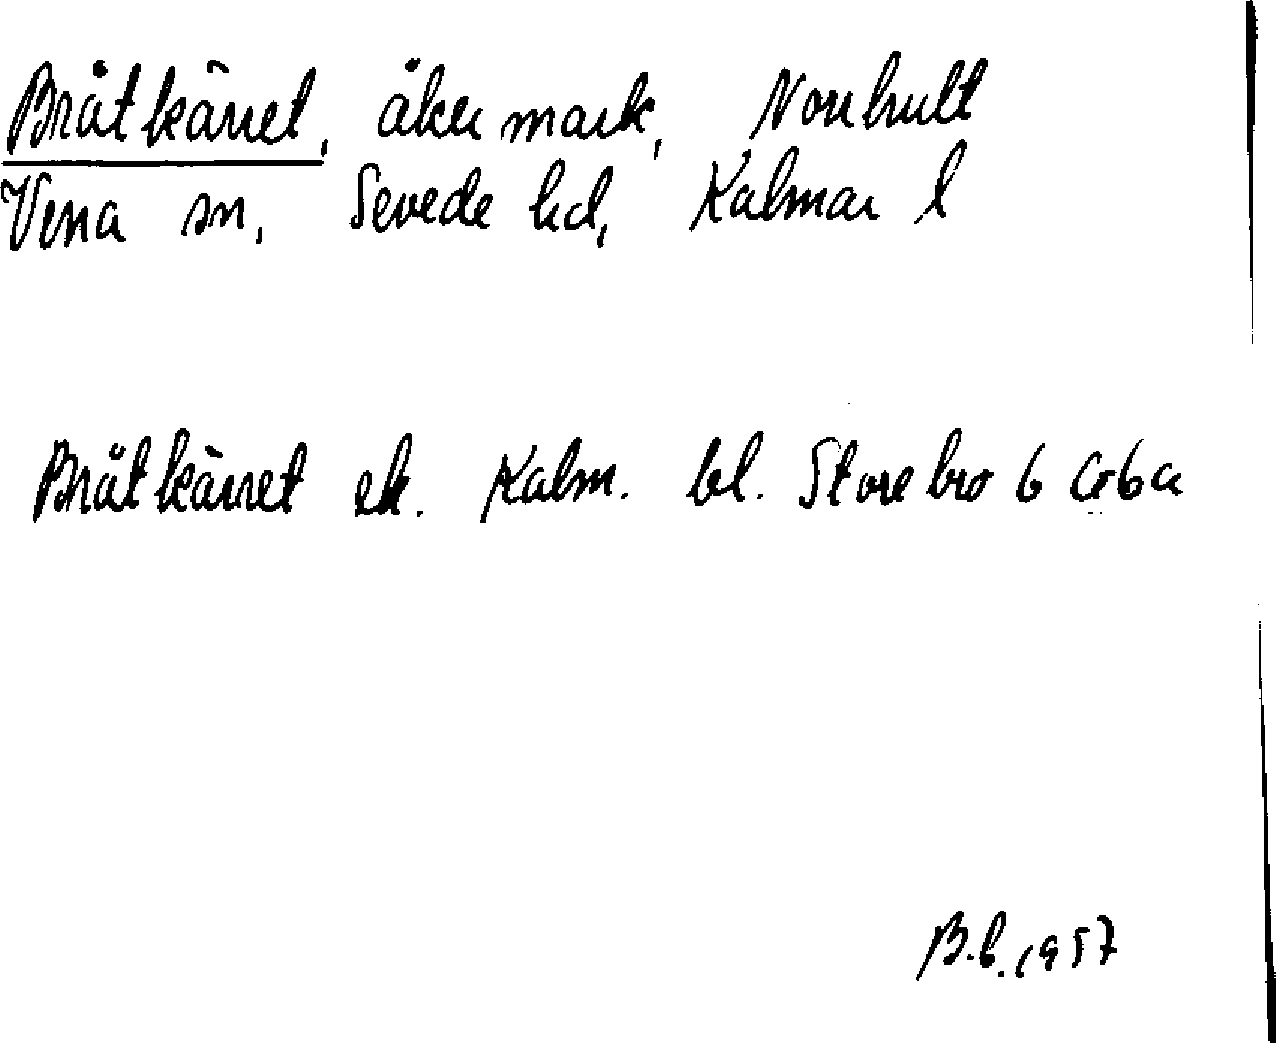 Bråtkärret, åkermark, Norrhult
Vena sn, Sevede hd, Kalmar l
Bråtkärret ek. Kalm. bl. Storebro 6 G 6 a
B.b. 1957